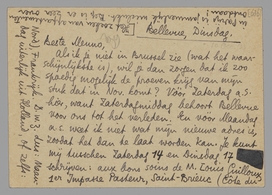 Bellevue, Dinsdag.
Beste Menno,
Als ik je niet in Brussel zie (wat het waar-
schijnlijkste is), wil je dan zorgen dat ik zoo
spoedig mogelijk de proeven krijg van mijn
stuk dat in Nov. komt? Vóór Zaterdag a.s.
hoor, want Zaterdagmiddag behoort Bellevue
voor ons tot het verleden. En voor Maandag
a.s. weet ik niet wat mijn nieuwe adres is,
zoodat het dan te laat worden kan. Je kunt
mij tusschen Zaterdag 14 en Dinsdag 17
schrijven: aux bons soins de M. Louis Guilloux,
1 Impasse Pasteur, Saint-Brieuc (Côte du
Nord), Frankrijk. D.w.z. dus: Maan-
dag uiterlijk uit Holland of zelfs